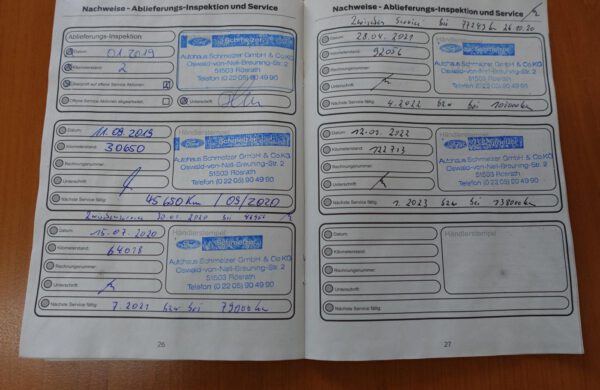 Nachweise - Ablieferungs-Inspektion und Service
Ablieferungs-Inspektion
Datum: 01.2019
Kilometerstand: 2
Überprüft auf offene Service Aktionen
Offene Service Aktionen abgearbeitet
Unterschrift
Ford Schmelzer
Autohaus Schmelzer GmbH & Co.KG
Oswald-von-Nell-Breuning-Str. 2
51503 Rösrath
Telefon (0 22 05) 90 49 90
Datum: 11.09.2019
Kilometerstand: 30650
Rechnungsnummer:
Unterschrift:
Nächste Service fällig: 45650 km / 09/2020
Händlerstempel
Ford Schmelzer
Autohaus Schmelzer GmbH & Co.KG
Oswald-von-Nell-Breuning-Str. 2
51503 Rösrath
Telefon (0 22 05) 90 49 90
Datum: 15.07.2020
Kilometerstand: 64018
Rechnungsnummer:
Unterschrift:
Nächste Service fällig: 7.2021 bzw bei 79000 km
Händlerstempel
Ford Schmelzer
Autohaus Schmelzer GmbH & Co.KG
Oswald-von-Nell-Breuning-Str. 2
51503 Rösrath
Telefon (0 22 05) 90 49 90
26
Nachweise - Ablieferungs-Inspektion und Service
Zwischen Service bei 77243 km 26.10.20
Datum: 28.04.2021
Kilometerstand: 92056
Rechnungsnummer:
Unterschrift:
Nächste Service fällig: 4.2022 bzw bei
Ford
Autohaus Schmelzer GmbH & Co.KG
Oswald-von-Nell-Breuning-Str. 2
51503 Rösrath
Telefon (0 22 05) 90 49 90
Datum: 12.01.2022
Kilometerstand: 122713
Rechnungsnummer:
Unterschrift:
Nächste Service fällig: 1.2023 bzw bei 138000 km
Händlerstempel
Autohaus Schmelzer GmbH & Co.KG
Oswald-von-Nell-Breuning-Str. 2
51503 Rösrath
Telefon (0 22 05) 90 49 90
Datum:
Kilometerstand:
Rechnungsnummer:
Unterschrift:
Nächste Service fällig:
Händlerstempel
27